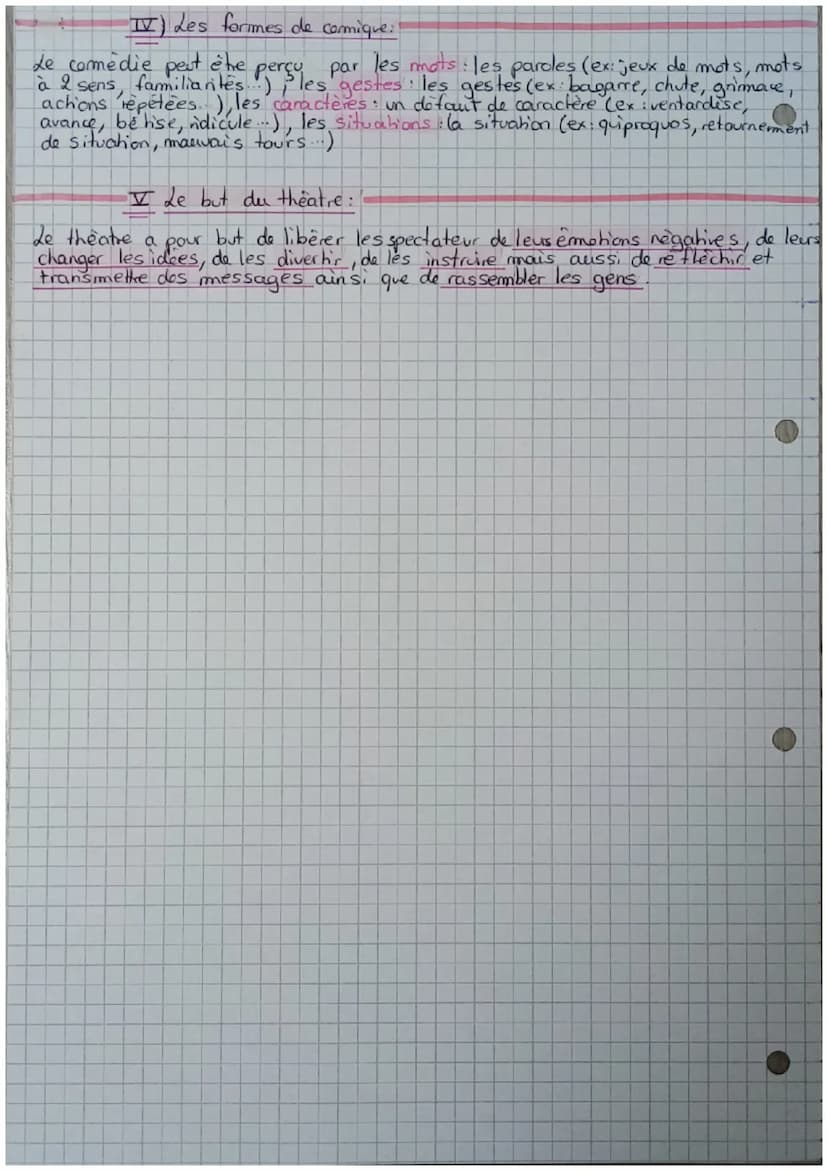 IV) Les formes de comique:
Le comédie peut être perçu par les mots : les paroles (ex: jeux de mots, mots
à 2 sens, familiarités...), les gestes : les gestes (ex: bagarre, chute, grimace,
actions répétées...), les caractères : un défaut de caractère (ex: ventardise,
avance, bêtise, ridicule...), les situations : la situation (ex: quiproquos, retournement
de situation, mauvais tours...)
V Le but du théâtre:
Le théâtre a pour but de libérer les spectateur de leus émotions négatives, de leurs
changer les idées, de les divertir, de les instruire mais aussi de réfléchir et
transmettre des messages ainsi que de rassembler les gens.